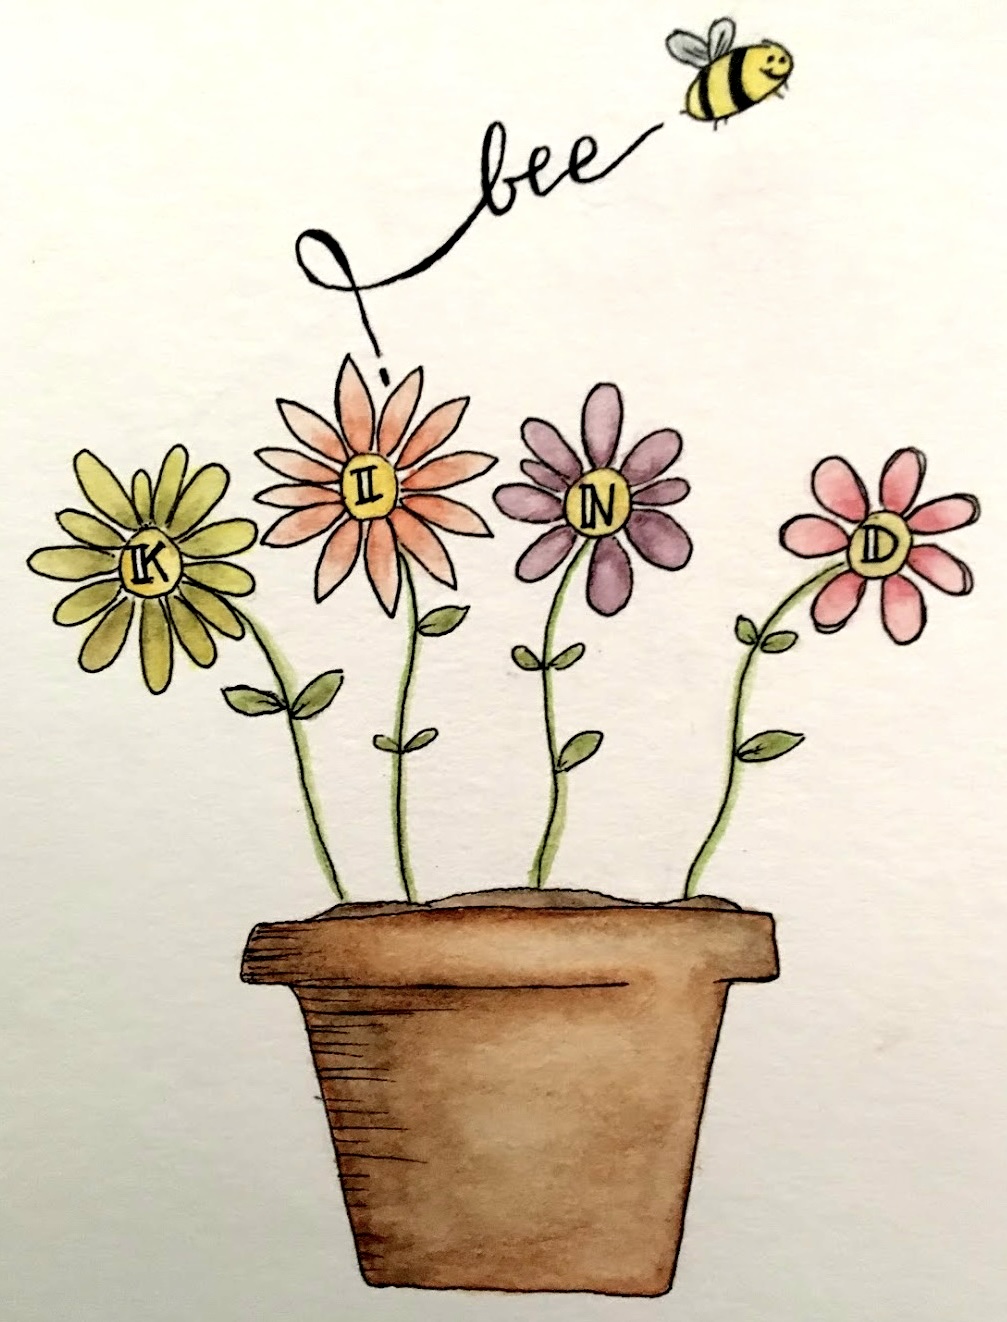 bee
K I N D